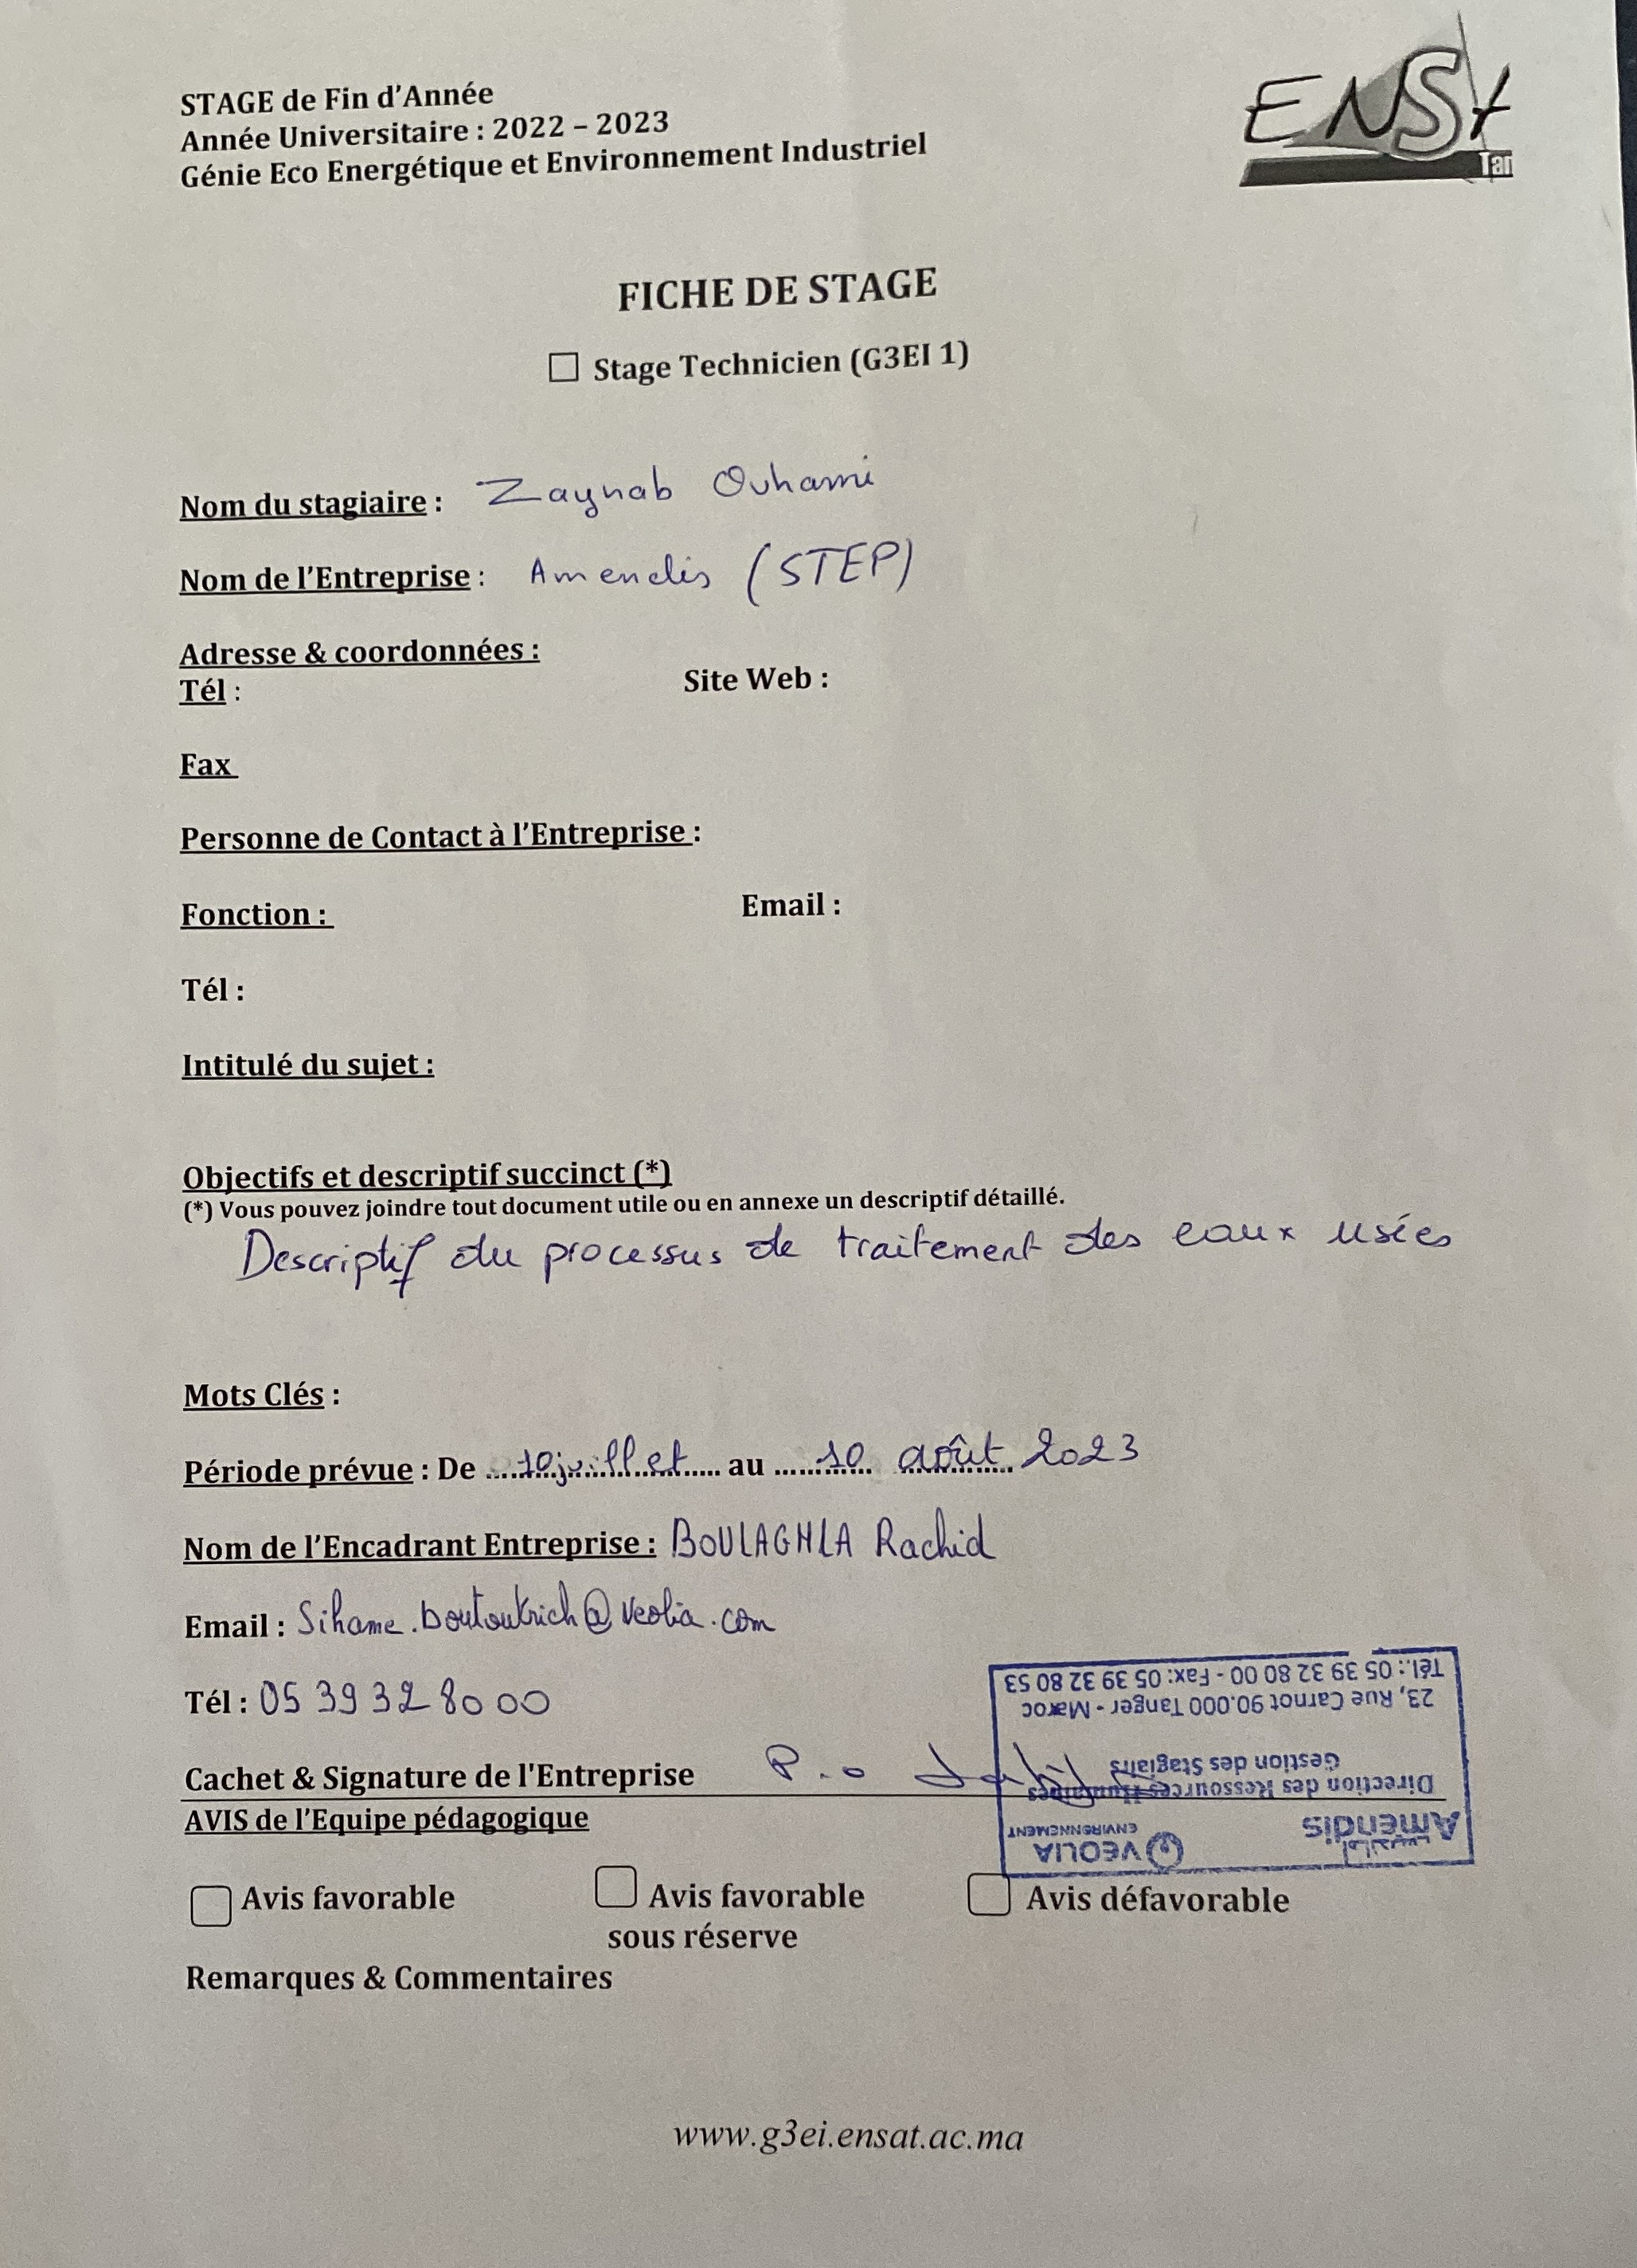 STAGE de Fin d'Année
Année Universitaire : 2022 – 2023
Génie Eco Energétique et Environnement Industriel
ENSt
Tan
FICHE DE STAGE
Stage Technicien (G3EI 1)
Nom du stagiaire : Zaynab Ouhami
Nom de l'Entreprise : Amendis (STEP)
Adresse & coordonnées :
Tél : Site Web :
Fax
Personne de Contact à l'Entreprise :
Fonction : Email :
Tél :
Intitulé du sujet :
Objectifs et descriptif succinct (*)
(*) Vous pouvez joindre tout document utile ou en annexe un descriptif détaillé.
Descriptif du processus de traitement des eaux usées
Mots Clés :
Période prévue : De ....10 juillet.... au ....10 août 2023
Nom de l'Encadrant Entreprise : BOULAGHLA Rachid
Email : Sihame.boutoutrich@veolia.com
Tél : 05 39 32 80 00
Cachet & Signature de l'Entreprise P.o
Amendis
أمانديس
VEOLIA
ENVIRONNEMENT
Direction des Ressources Humaines
Gestion des Stagiaires
23, Rue Carnot 90.000 Tanger - Maroc
Tél.: 05 39 32 80 00 - Fax: 05 39 32 80 53
AVIS de l'Equipe pédagogique
Avis favorable Avis favorable Avis défavorable
sous réserve
Remarques & Commentaires
www.g3ei.ensat.ac.ma